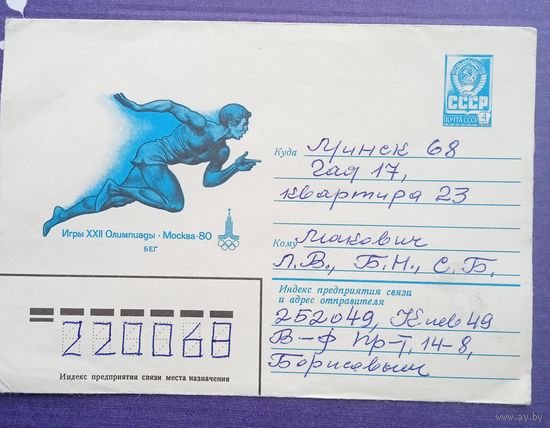 СССР
ПОЧТА СССР
4
Куда Минск 68
Гая 17,
квартира 23
Кому Макович
Л.В., Б.Н., С.Б.
Игры XXII Олимпиады · Москва-80
БЕГ
Индекс предприятия связи
и адрес отправителя
252049, Киев 49
В-Ф Пр-Т, 14-8,
Борисовым
220068
Индекс предприятия связи места назначения
www.ay.by